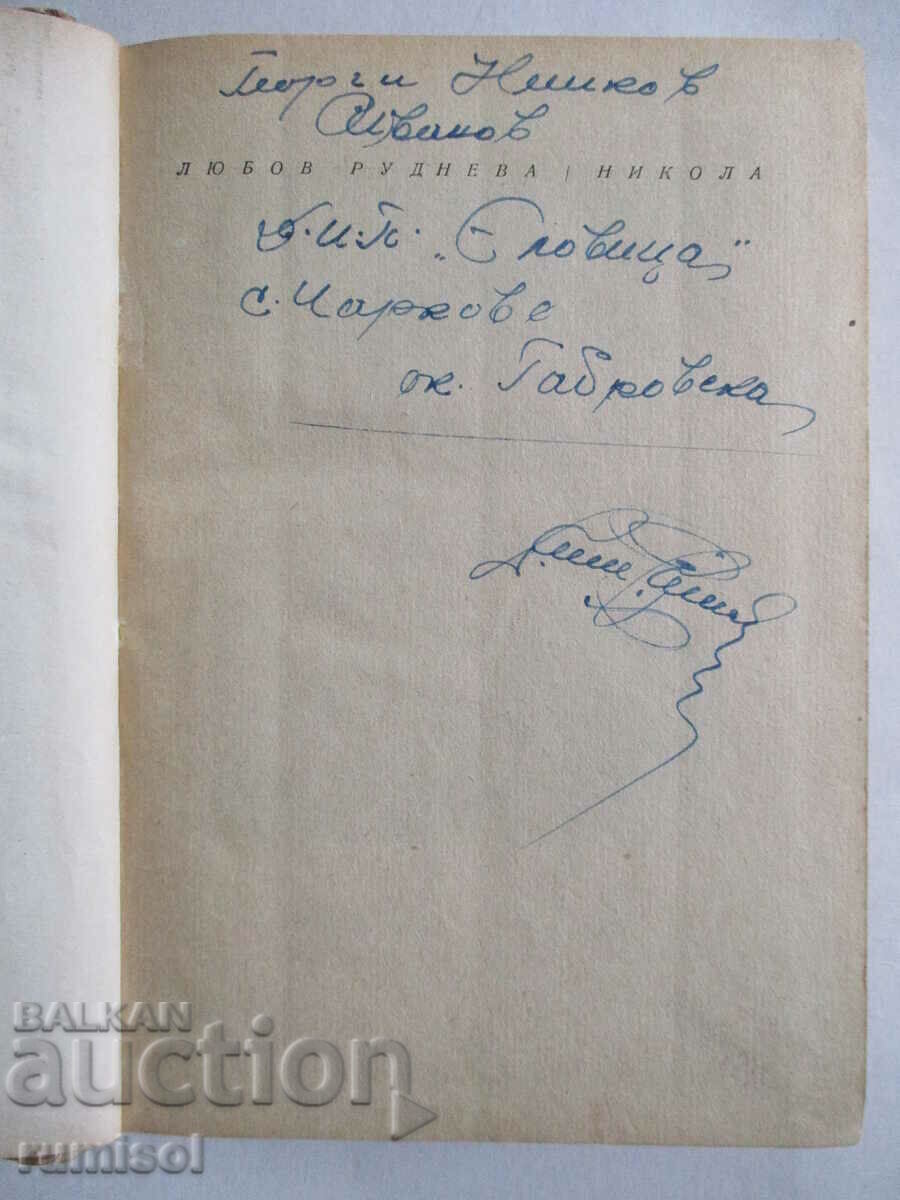 Георги Ненков
Иванов
ЛЮБОВ РУДНЕВА | НИКОЛА
Д.И.П. „Еловица"
с. Чарково
ок. Габровска
BALKAN
auction
rumisol